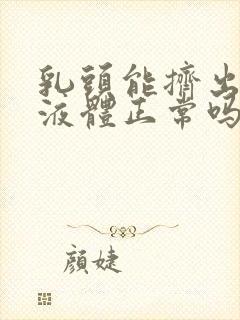 乳頭能擠出
液體正常吗
顏婕